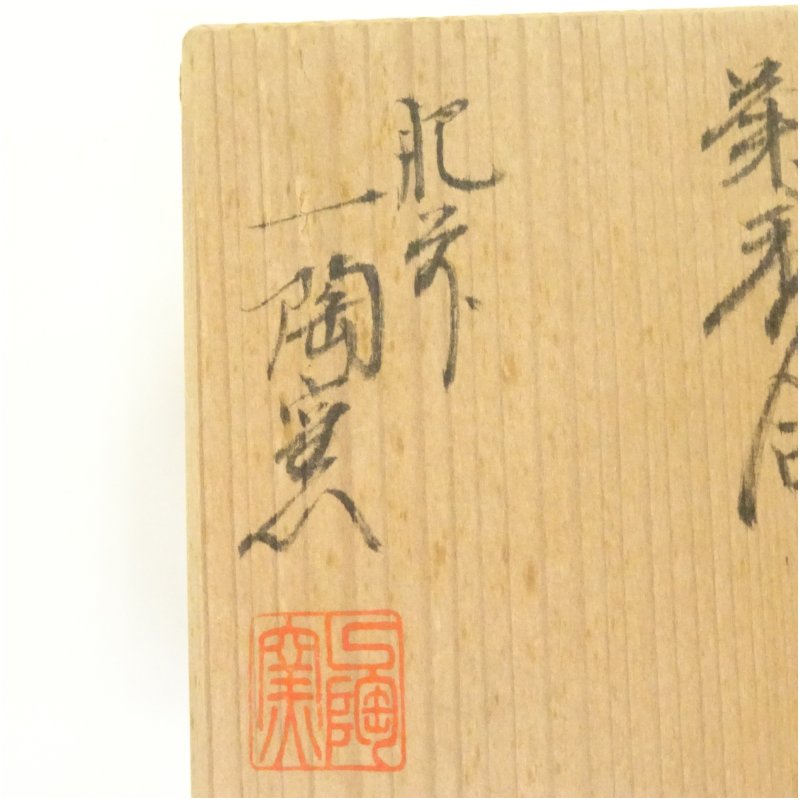 香合
肥前
一陶窯
一陶窯